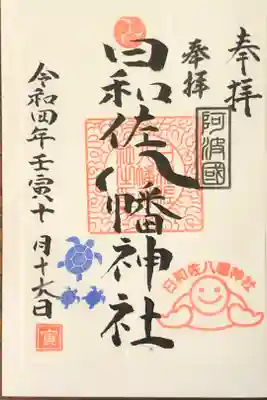 奉拝
奉拝
阿波國
日和佐八幡神社
日和佐八幡神社
令和四年壬寅十月十六日
寅